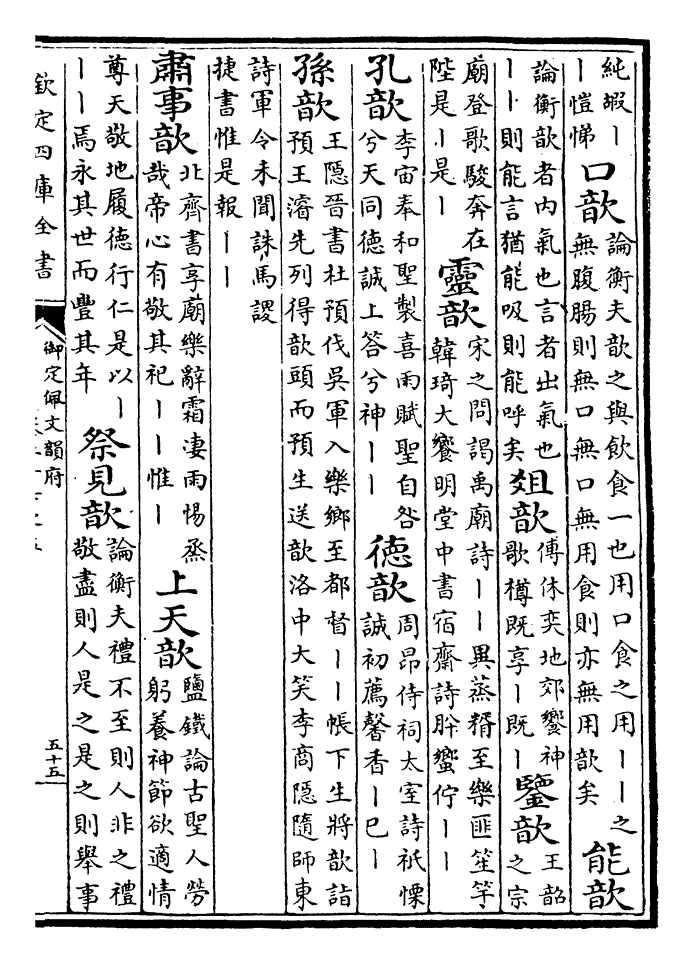 純嘏丨
丨愷悌
口歆
論衡夫歆之與飲食一也用口食之用丨丨之
無腹腸則無口無口無用食則亦無用歆矣
能歆
論衡歆者内氣也言者出氣也
丨丨則能言猶能吸則能呼矣
爼歆
傅休奕地郊饗神
歌樽既享丨既丨
鑒歆
王韶
之宗
廟登歌駿奔在
陛是丨是丨
靈歆
宋之問謁禹廟詩丨丨異蒸糈至樂匪笙竽
韓琦大饗明堂中書宿齋詩肸蠁佇丨丨
孔歆
李宙奉和聖製喜雨賦聖自咎
兮天同德誠上答兮神丨丨
德歆
周昂侍祠太室詩祇慄
誠初薦馨香丨巳丨
孫歆
王隱晉書杜預伐吳軍入樂鄉至都督丨丨帳下生將歆詣
預王濬先列得歆頭而預生送歆洛中大笑李商隱隨師東
詩軍令未聞誅馬謖
捷書惟是報丨丨
肅事歆
北齊書享廟樂辭霜淒雨惕烝
哉帝心有敬其祀丨丨惟丨
上天歆
鹽鐵論古聖人勞
躬養神節欲適情
尊天敬地履德行仁是以丨
丨丨焉永其世而豐其年
祭見歆
論衡夫禮不至則人非之禮
敬盡則人是之是之則舉事
欽定四庫全書
御定佩文韻府
五十五